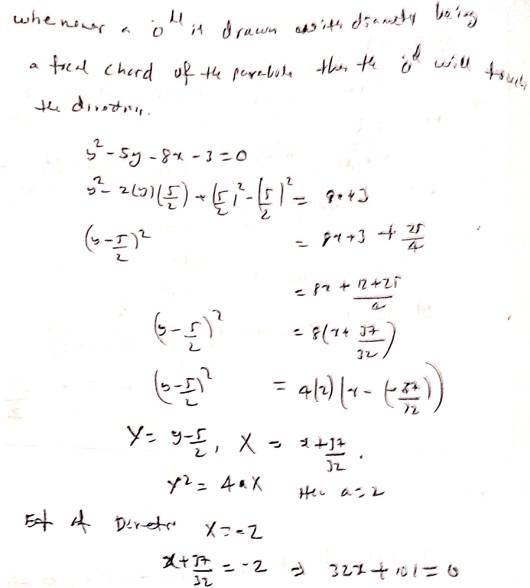 whenever a o^le is drawn with diameter being
a focal chord of the parabola then the o^le will touch
the directrix.
y² - 5y - 8x - 3 = 0
y² - 2(y)(5/2) + (5/2)² - (5/2)² = 8x + 3
(y - 5/2)² = 8x + 3 + 25/4
= 8x + (12 + 25)/4
(y - 5/2)² = 8(x + 37/32)
(y - 5/2)² = 4(2)(x - (-37/32))
Y = y - 5/2, X = x + 37/32.
Y² = 4aX Here a = 2
Eqt of Directrix X = -2
x + 37/32 = -2 ⇒ 32x + 101 = 0